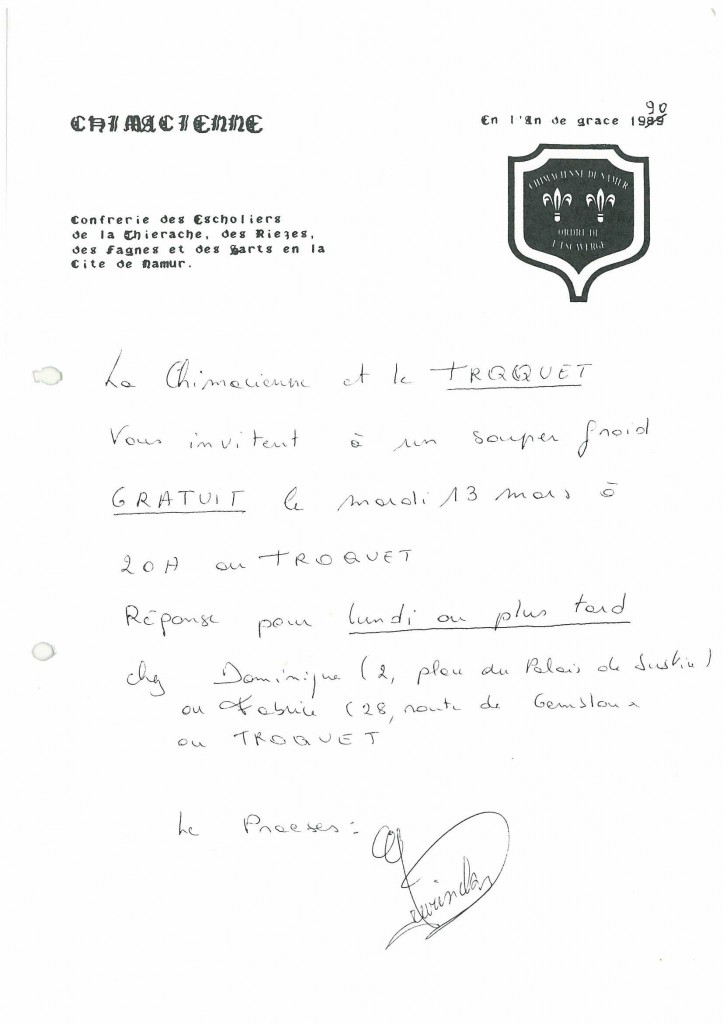 CHIMACIENNE
En l'An de grace 1989 90
CHIMACIENNE DE NAMUR
ORDRE DE
L'ESCAVERGE
Confrerie des Escholiers
de la Thierache, des Riezes,
des Fagnes et des Sarts en la
Cite de Namur.
La Chimacienne et le TROQUET
Vous invitent à un souper froid
GRATUIT le mardi 13 mars à
20H au TROQUET
Réponse pour lundi au plus tard
chez Dominique (2, place du Palais de Justice)
ou Fabrice (28, route de Gembloux
ou TROQUET
Le Praeses :